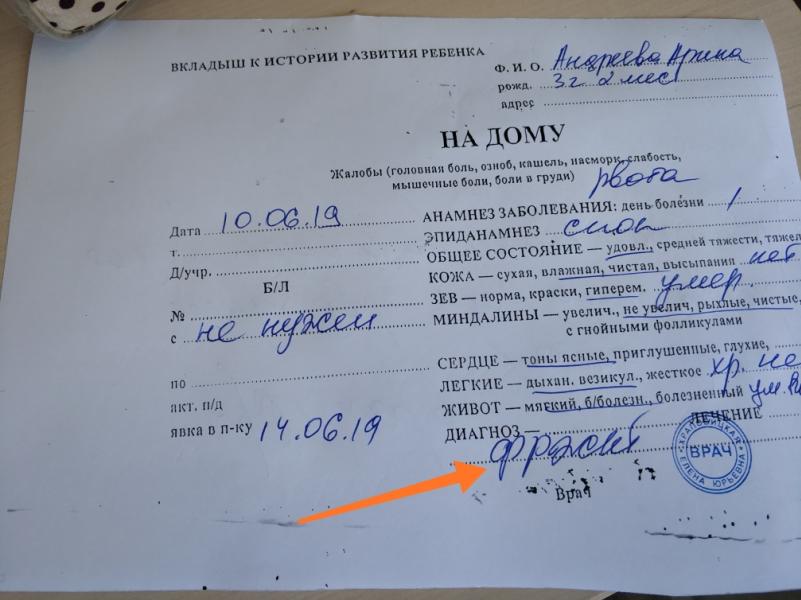 ВКЛАДЫШ К ИСТОРИИ РАЗВИТИЯ РЕБЕНКА
Ф. И. О. Андреева Арина
рожд. 3 г. 2 мес
адрес
НА ДОМУ
Жалобы (головная боль, озноб, кашель, насморк, слабость,
мышечные боли, боли в груди) рвота
Дата 10.06.19
АНАМНЕЗ ЗАБОЛЕВАНИЯ: день болезни 1
т.
ЭПИДАНАМНЕЗ спок
Д/учр.
ОБЩЕЕ СОСТОЯНИЕ — удовл., средней тяжести, тяжел
Б/Л
КОЖА — сухая, влажная, чистая, высыпания нет
№
ЗЕВ — норма, краски, гиперем. умер.
с не нужен
МИНДАЛИНЫ — увелич., не увелич, рыхлые, чистые,
с гнойными фолликулами
СЕРДЦЕ — тоны ясные, приглушенные, глухие,
по
ЛЕГКИЕ — дыхан. везикул., жесткое хр. не
акт. п/д
ЖИВОТ — мягкий, б/болезн., болезненный ум.
явка в п-ку 14.06.19
ДИАГНОЗ — ЛЕЧЕНИЕ
ФРЖКТ
ВРАЧ
ЕЛЕНА ЮРЬЕВНА
Врач